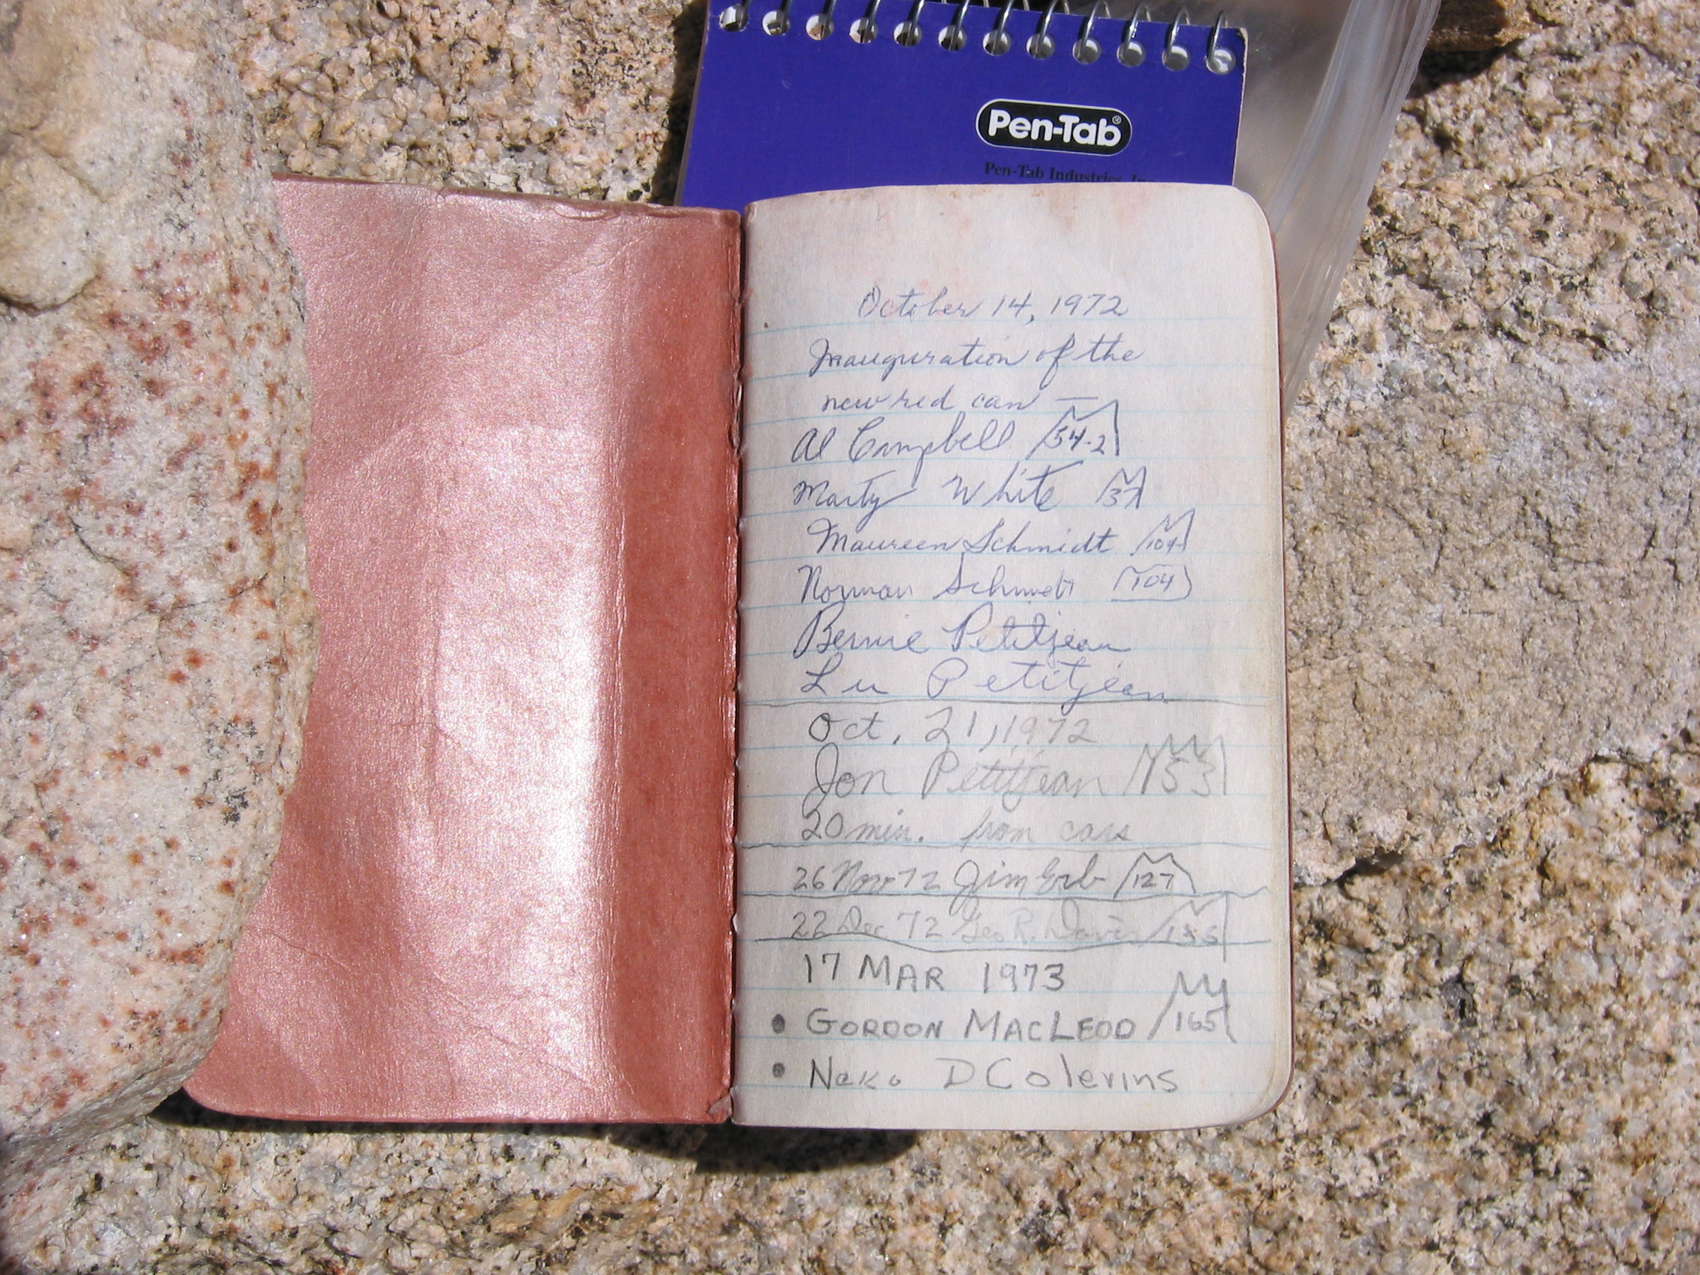 Pen-Tab®
Pen-Tab Industries, In
October 14, 1972
Inauguration of the
new red can —
Al Campbell 54-2
Marty White 37
Maureen Schmidt 104
Norman Schmidt 104
Bernie Petitjean
Lu Petitjean
Oct. 21, 1972
Jon Petitjean 153
20 min. from cars
26 Nov 72 Jim Erb 127
22 Dec 72 Geo R. Davis
17 MAR 1973
• GORDON MACLEOD 165
•